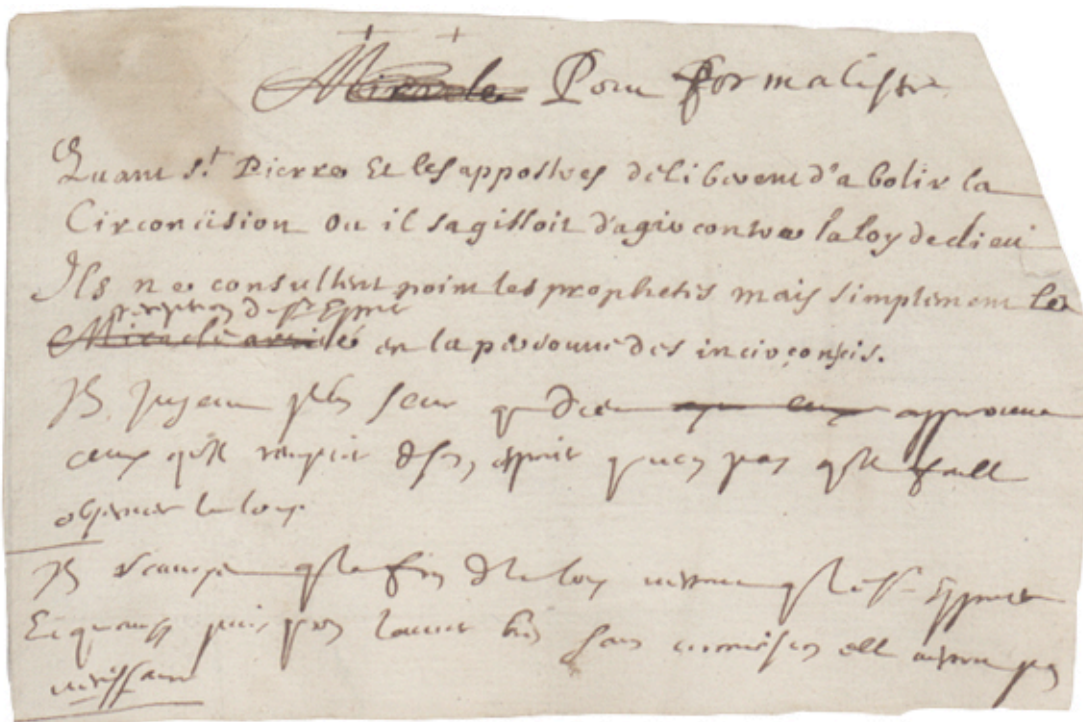 Miracle Pour formaliste
Quant St Pierre Et les appostres deliberent d'abolir la
Circoncision Ou il sagissoit d'agir contre la loy de dieu
Ils ne consultent point les prophetes mais simplement la
reception du St Esprit
en la personne des incirconcis.
Ils Jugent plus seur que Dieu approuve
ceux qu'il remplit de son esprit que non pas qu'il faille
observer la loy.
Ils scavoient que la fin de la loy n'estoit que le St Esprit
Et qu'ainsy puis qu'on l'avoit bien sans circoncision elle n'estoit pas
necessaire